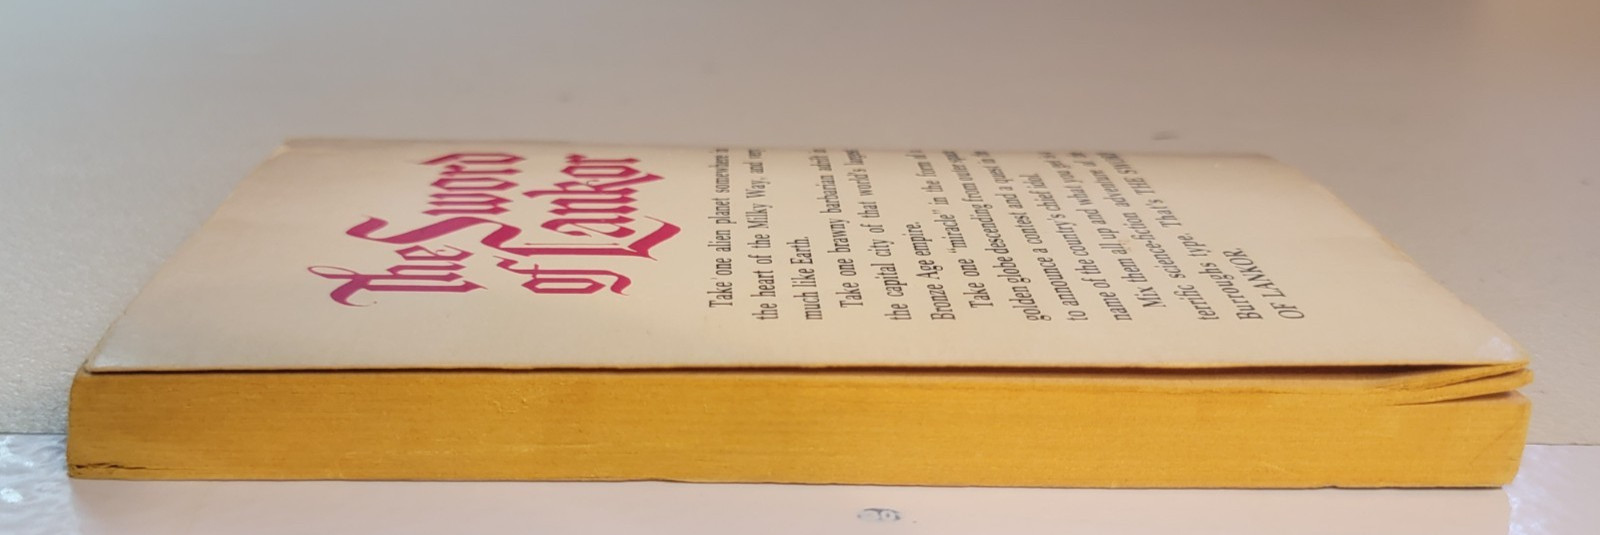 The Sword
of Lankor
Take one alien planet somewhere
the heart of the Milky Way, and very
much like Earth.
Take one brawny barbarian adrift
the capital city of that world's largest
Bronze Age empire.
Take one "miracle" in the form of a
golden globe descending from outer space
to announce a contest and a quest in the
name of the country's chief idol.
Mix them all up and what you get is a
terrific science-fiction adventure of the
Burroughs type. That's THE SWORD
OF LANKOR.